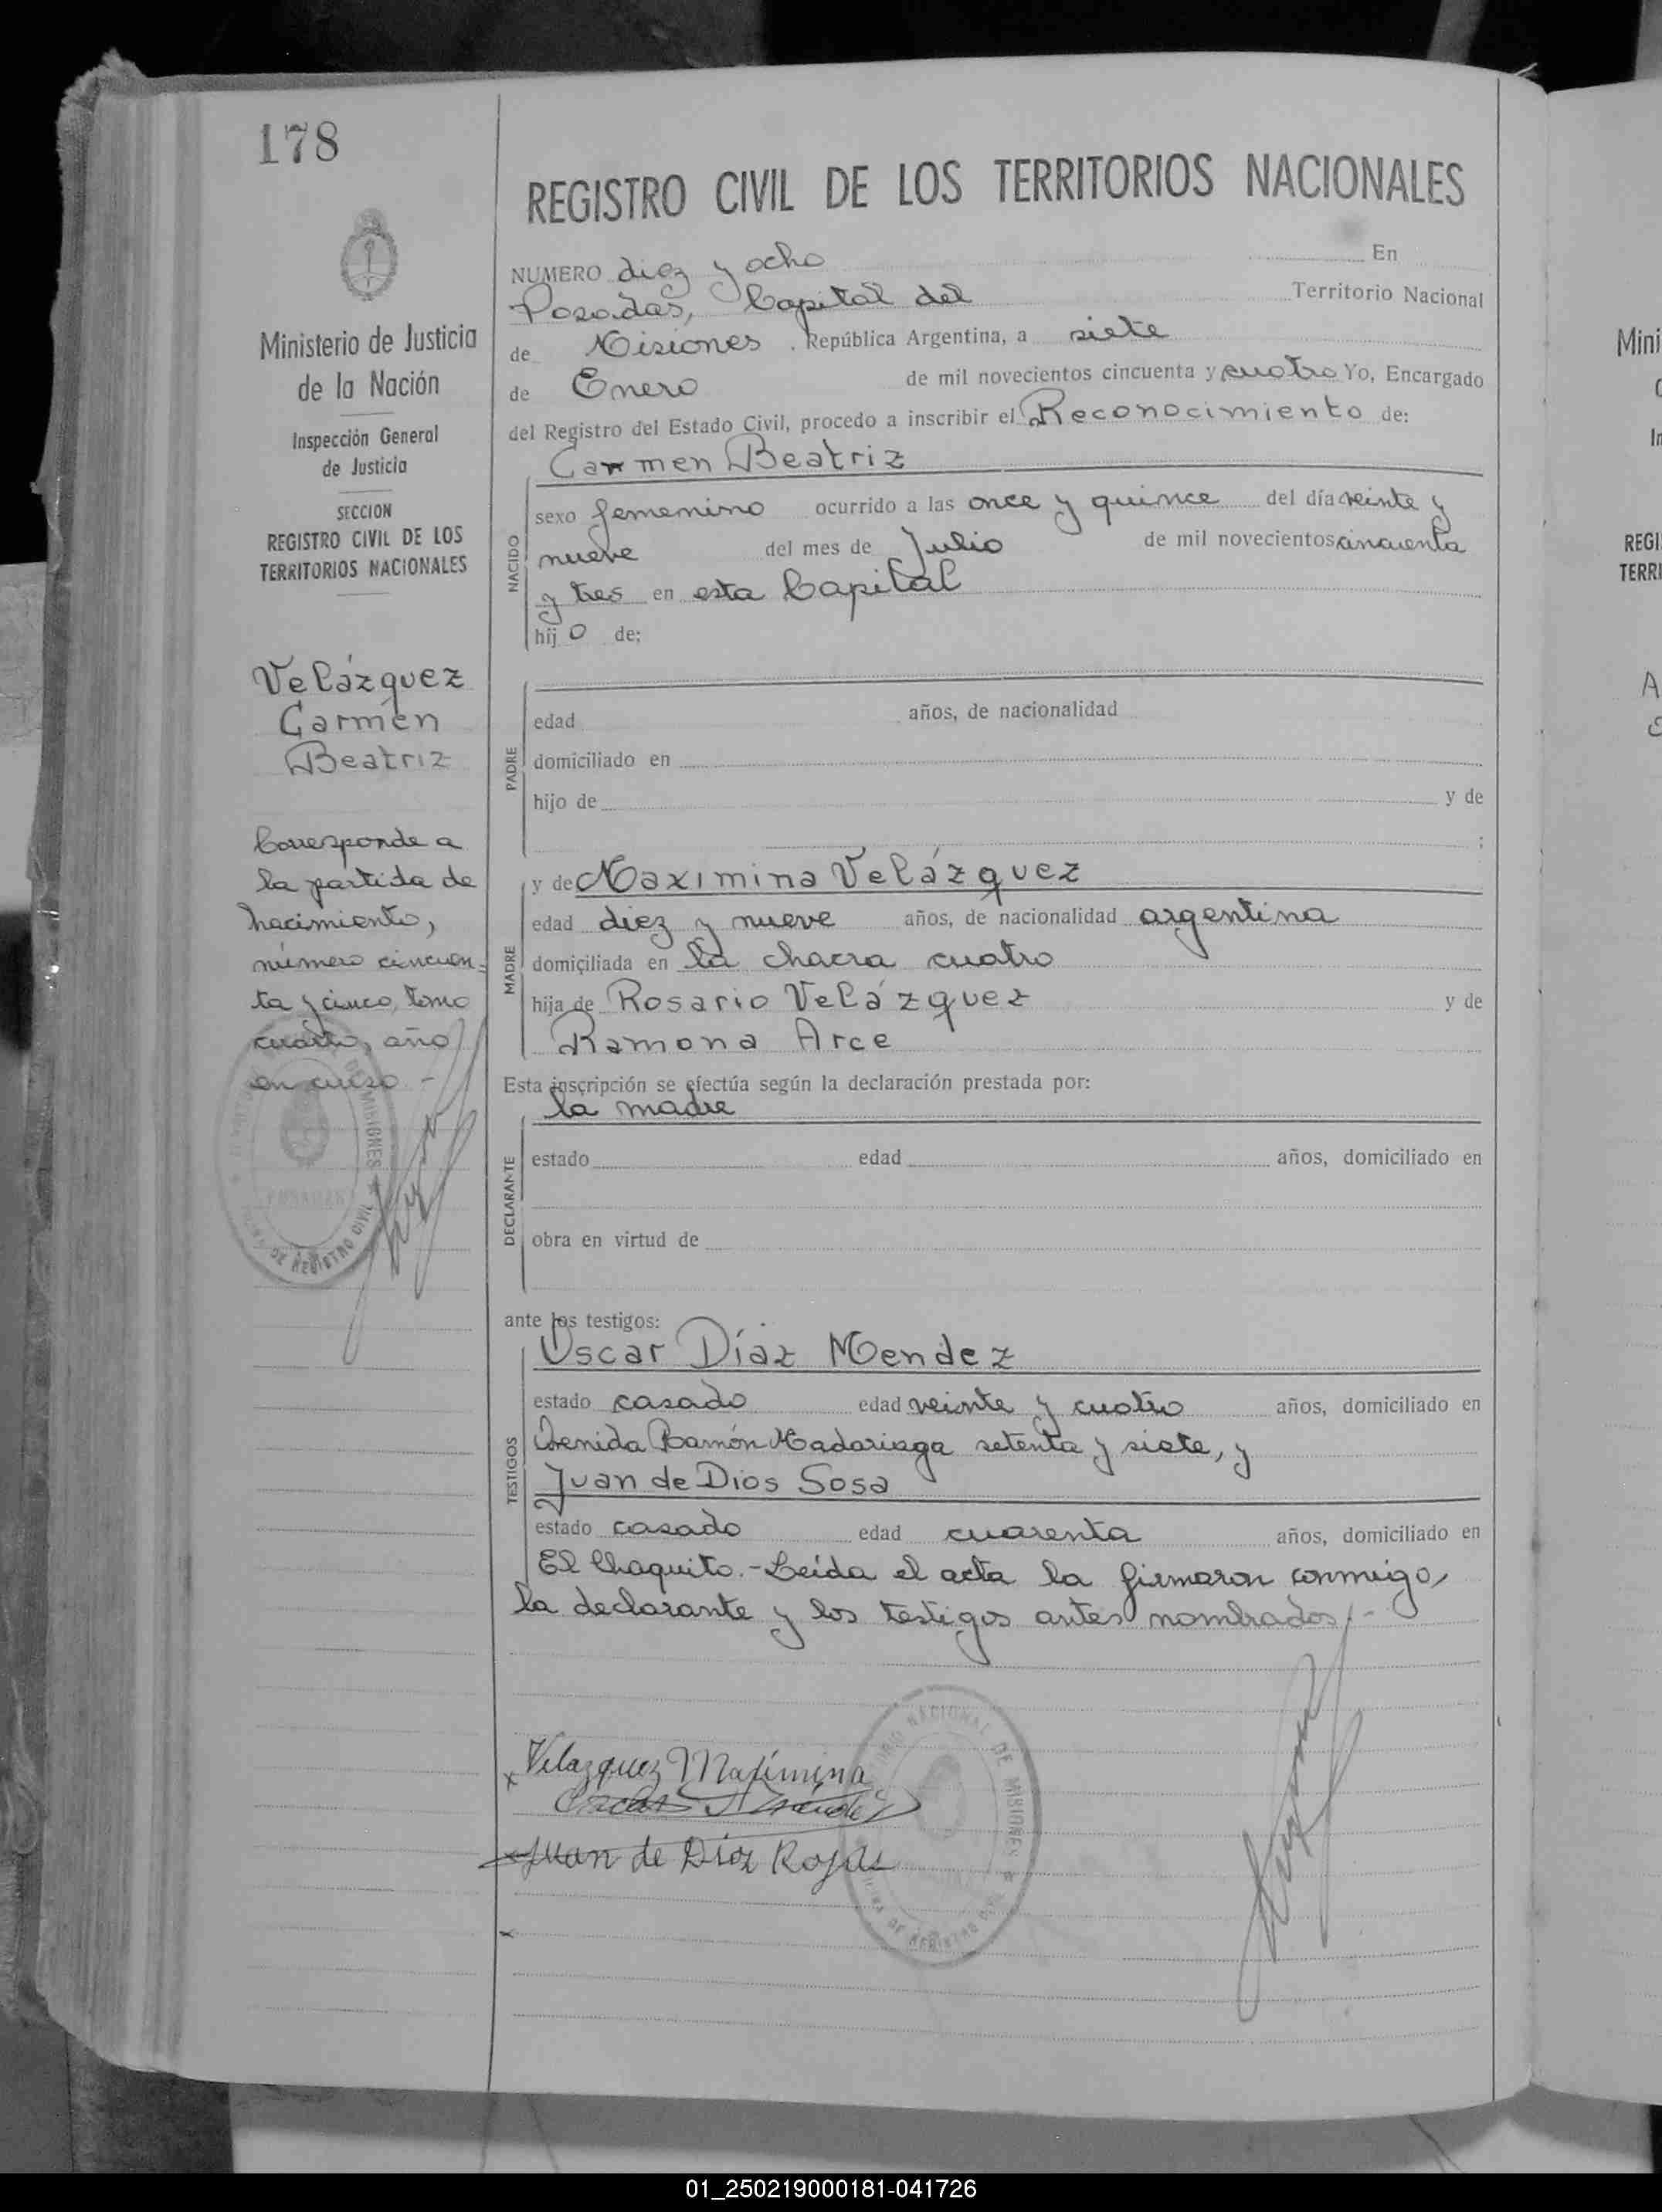 178
REGISTRO CIVIL DE LOS TERRITORIOS NACIONALES
NUMERO diez y ocho En
Posadas, Capital del Territorio Nacional
de Misiones, República Argentina, a siete
de Enero de mil novecientos cincuenta y cuatro Yo, Encargado
del Registro del Estado Civil, procedo a inscribir el Reconocimiento de:
Carmen Beatriz
NACIDO
sexo femenino ocurrido a las once y quince del día veinte y
nueve del mes de Julio de mil novecientos cincuenta
y tres en esta Capital
hij o de:
PADRE
edad años, de nacionalidad
domiciliado en
hijo de y de
;
MADRE
y de Maximina Velázquez
edad diez y nueve años, de nacionalidad argentina
domiciliada en la chacra cuatro
hija de Rosario Velázquez y de
Ramona Arce
Esta inscripción se efectúa según la declaración prestada por:
la madre
DECLARANTE
estado edad años, domiciliado en
obra en virtud de
ante los testigos:
Oscar Díaz Mendez
TESTIGOS
estado casado edad veinte y cuatro años, domiciliado en
Avenida Ramón Madariaga setenta y siete, y
Juan de Dios Sosa
estado casado edad cuarenta años, domiciliado en
El Chaquito.-Leída el acta la firmaron conmigo,
la declarante y los testigos antes nombrados.-
x Velazquez Maximina
Juan de Dios Rojas
x
TERRITORIO NACIONAL DE MISIONES
OFICINA DE REGISTRO CIVIL
Ministerio de Justicia
de la Nación
Inspección General
de Justicia
SECCION
REGISTRO CIVIL DE LOS
TERRITORIOS NACIONALES
Velázquez
Carmen
Beatriz
Corresponde a
la partida de
nacimiento,
número cincuen-
ta y cinco, tomo
cuarto, año
en curso.-
DE MISIONES
POSADAS
DE REGISTRO CIVIL
Mini
REGI
TERRI
01_250219000181-041726